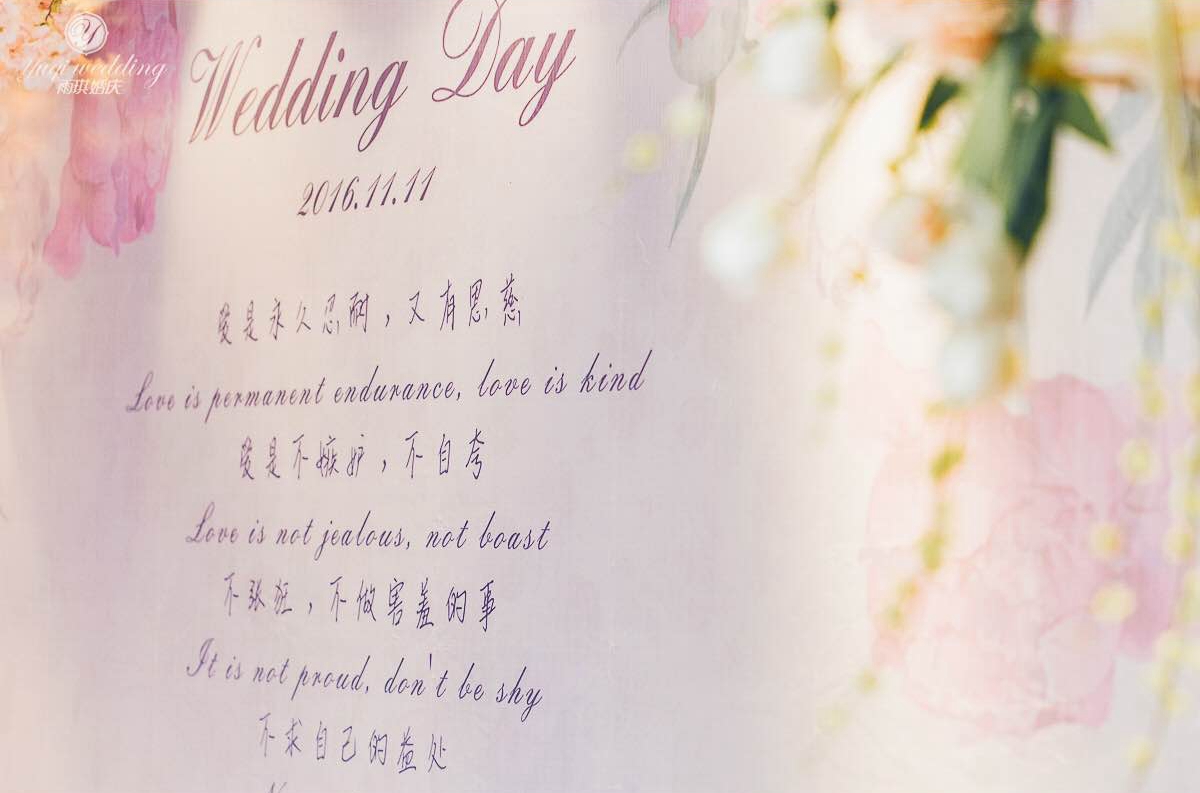 Yuqi wedding
雨琪婚庆
Wedding Day
2016.11.11
爱是永久忍耐，又有恩慈
Love is permanent endurance, love is kind
爱是不嫉妒，不自夸
Love is not jealous, not boast
不张狂，不做害羞的事
It is not proud, don't be shy
不求自己的益处